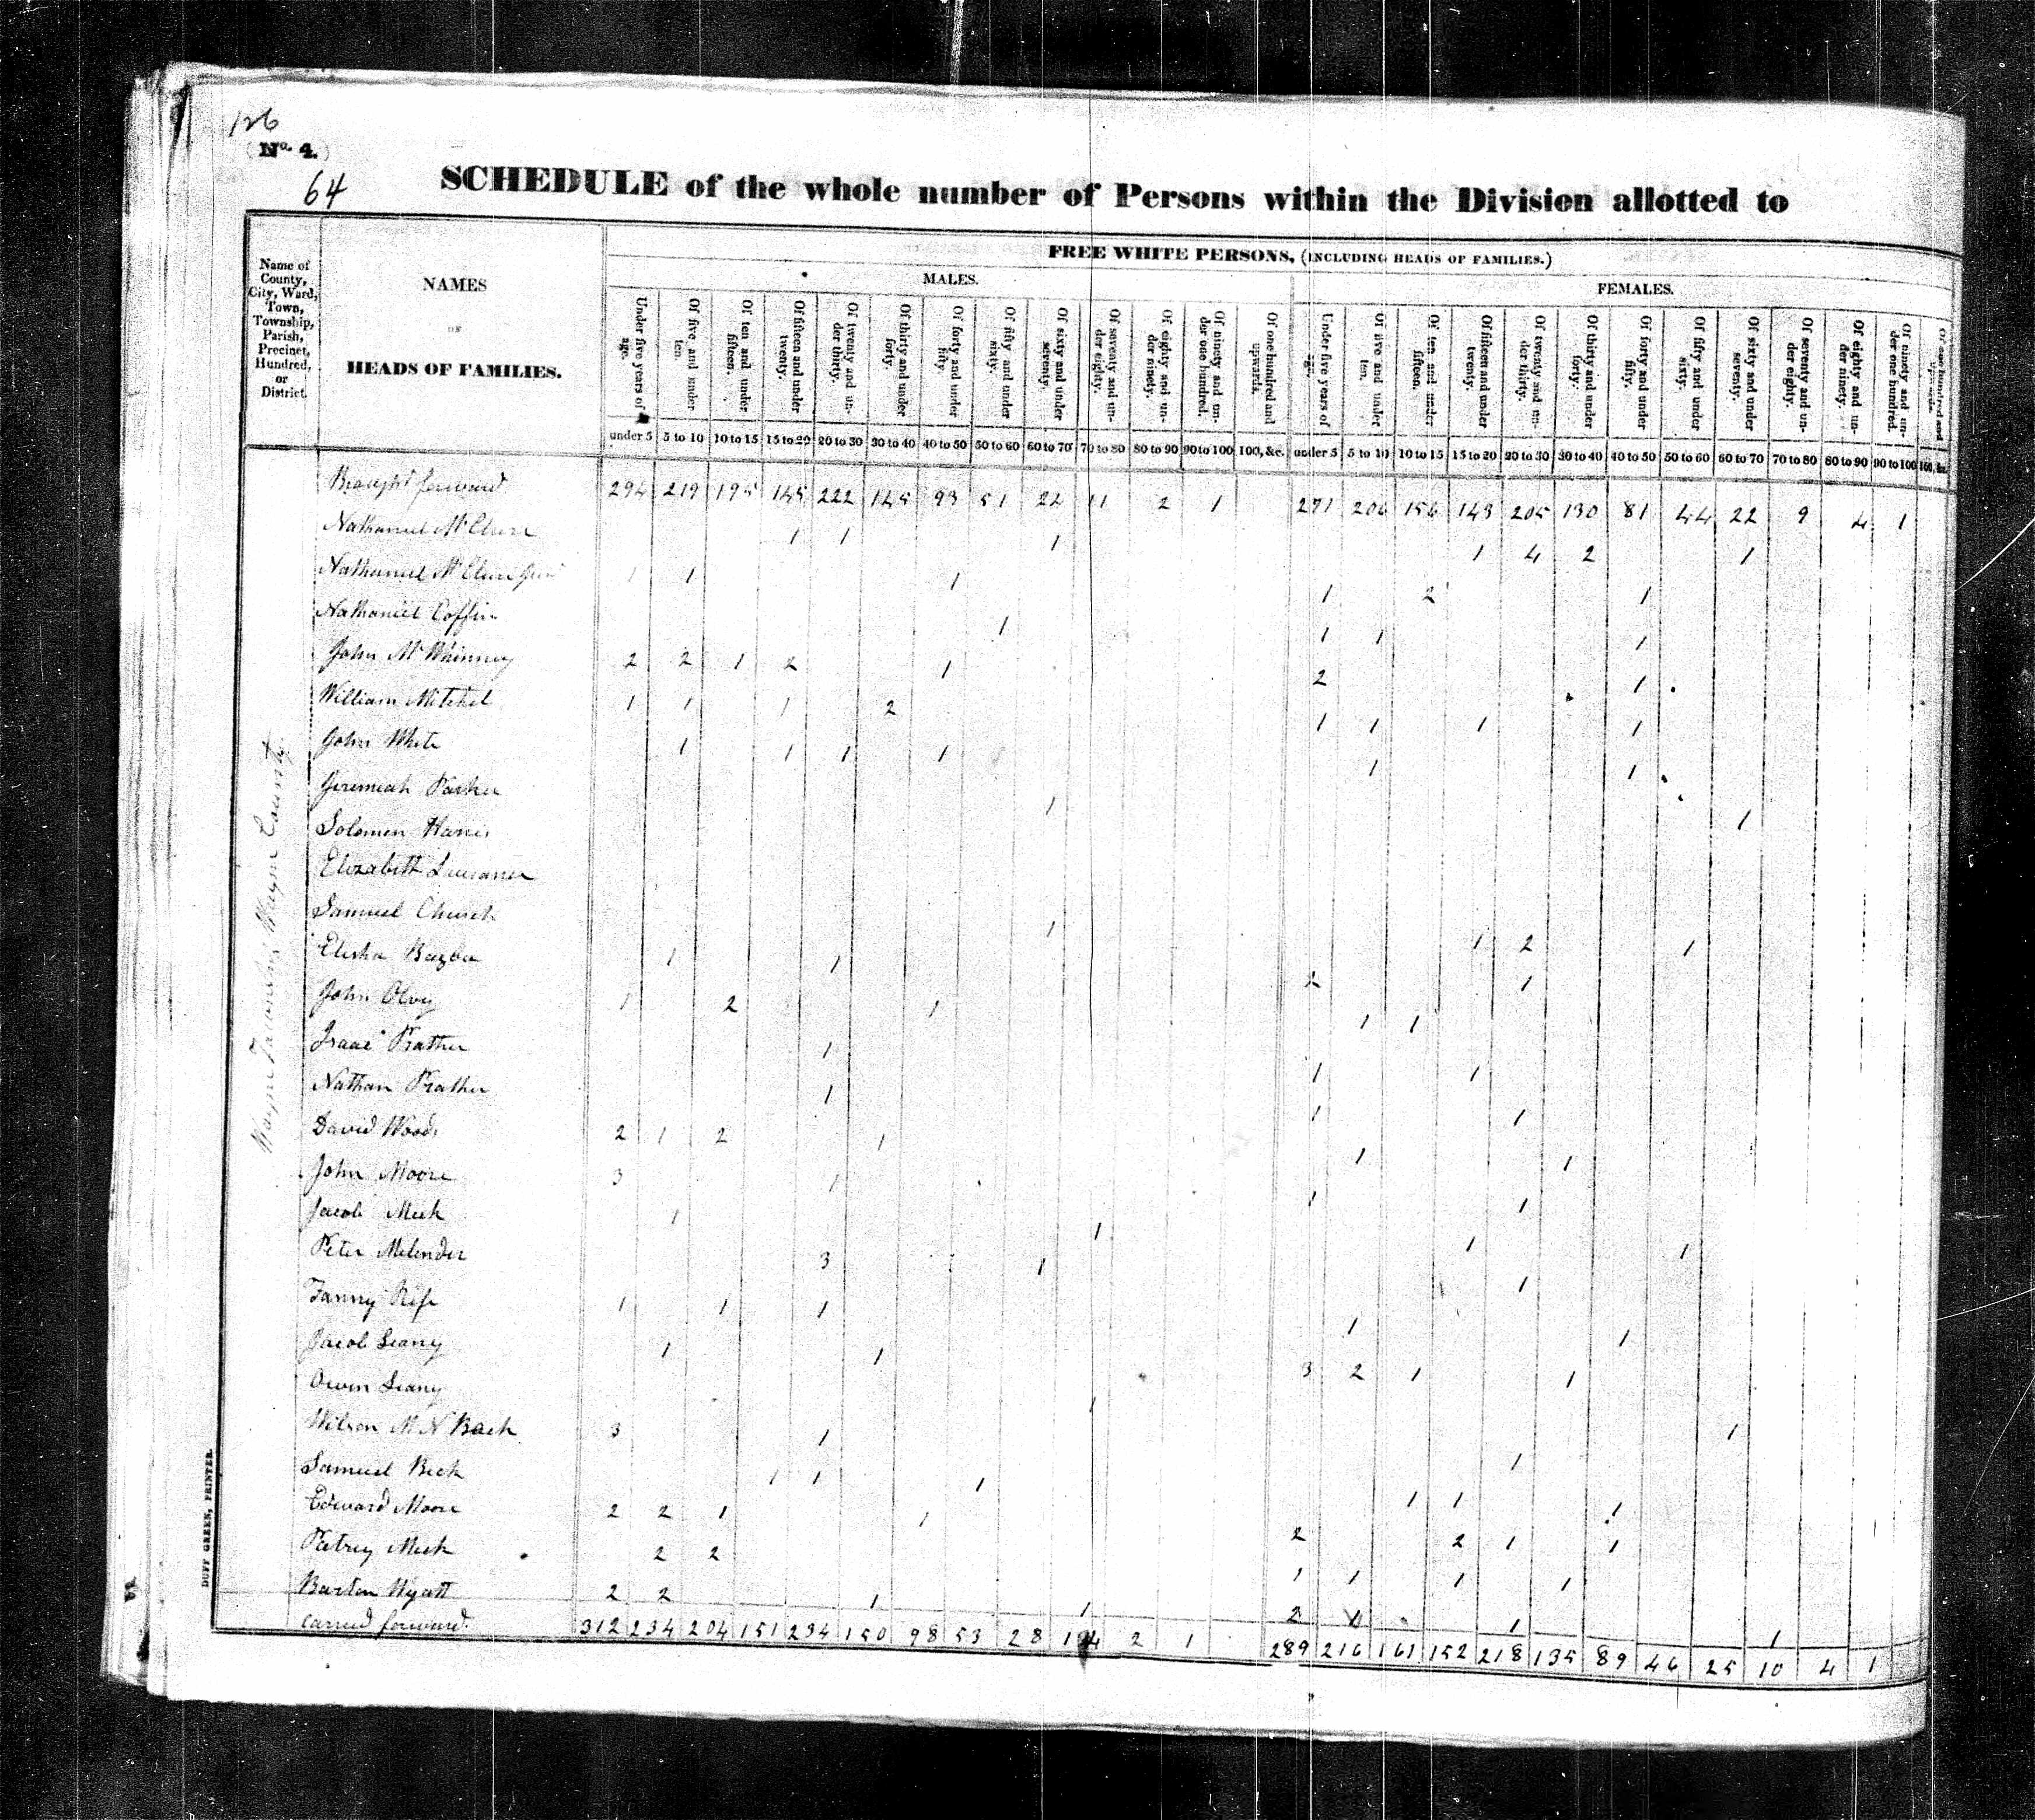 126
No. 4.
64
SCHEDULE of the whole number of Persons within the Division allotted to
Name of County, City, Ward, Town, Township, Parish, Precinct, Hundred, or District.
NAMES
OF
HEADS OF FAMILIES.
FREE WHITE PERSONS, (INCLUDING HEADS OF FAMILIES.)
MALES.
FEMALES.
Under five years of age. Of five and under ten. Of ten and under fifteen. Of fifteen and under twenty. Of twenty and under thirty. Of thirty and under forty. Of forty and under fifty. Of fifty and under sixty. Of sixty and under seventy. Of seventy and under eighty. Of eighty and under ninety. Of ninety and under one hundred. Of one hundred and upwards. Under five years of age. Of five and under ten. Of ten and under fifteen. Of fifteen and under twenty. Of twenty and under thirty. Of thirty and under forty. Of forty and under fifty. Of fifty and under sixty. Of sixty and under seventy. Of seventy and under eighty. Of eighty and under ninety. Of ninety and under one hundred. Of one hundred and upwards.
under 5 5 to 10 10 to 15 15 to 20 20 to 30 30 to 40 40 to 50 50 to 60 60 to 70 70 to 80 80 to 90 90 to 100 100, &c. under 5 5 to 10 10 to 15 15 to 20 20 to 30 30 to 40 40 to 50 50 to 60 60 to 70 70 to 80 80 to 90 90 to 100 100, &c.
Brought forward 294 219 195 145 222 145 93 51 22 11 2 1 271 206 156 143 205 130 81 44 22 9 4 1
Nathaniel McClure 1 1 1 1 4 2 1
Nathaniel McClure Junr 1 1 1 1 2 1
Nathaniel Coffin 1 1 1 1
John McWhinney 2 2 1 2 1 2 1
William Mitchel 1 1 1 2 1 1 1 1
John White 1 1 1 1 1 1
Jeremiah Parker 1 1
Solomon Harris
Elizabeth
Samuel Church 1 1 2 1
Elisha 1 1 2 1
John Olvy 1 2 1 1 1
Isaac Prather 1 1 1
Nathan Prather 1 1 1
David Woods 2 1 2 1 1 1
John Moore 3 1 1 1
Jacob Meek 1 1 1 1
Peter Melender 3 1 1 1
Fanny Rife 1 1 1 1 1
Jacob Seany 1 1 3 2 1 1
Owen Seany 1 1
Wilson M N Back 3 1 1
Samuel Beck 1 1 1 1 1 1
Edward Moore 2 2 1 1 2 2 1 1
Meek 2 2 1 1 1 1
Barton Wyatt 2 2 1 2 1 1
1 1
Carried forward. 312 234 204 151 234 150 98 53 28 14 2 1 289 216 161 152 218 135 89 46 25 10 4 1
Wayne Township Wayne County
DUFF GREEN, PRINTER.